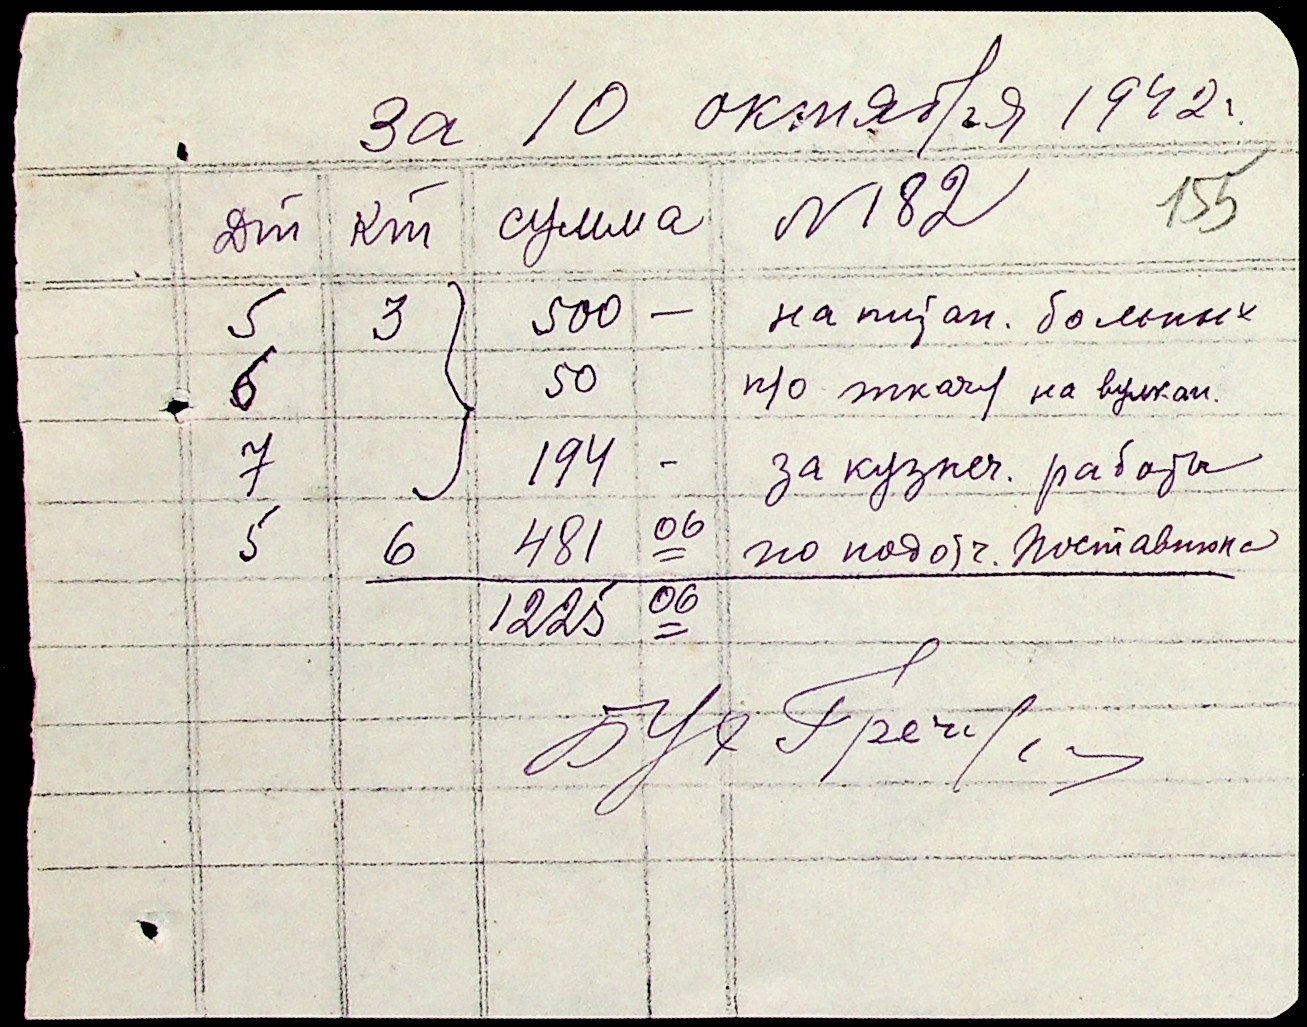 за 10 октября 1942г.
Дт Кт сумма N182 155
5 3 500 — на питан. больных
6 50 п/о ткач на вулкан.
7 194 - за кузнеч. работы
5 6 481 06 по подотч.
1225 06
Бух Греч